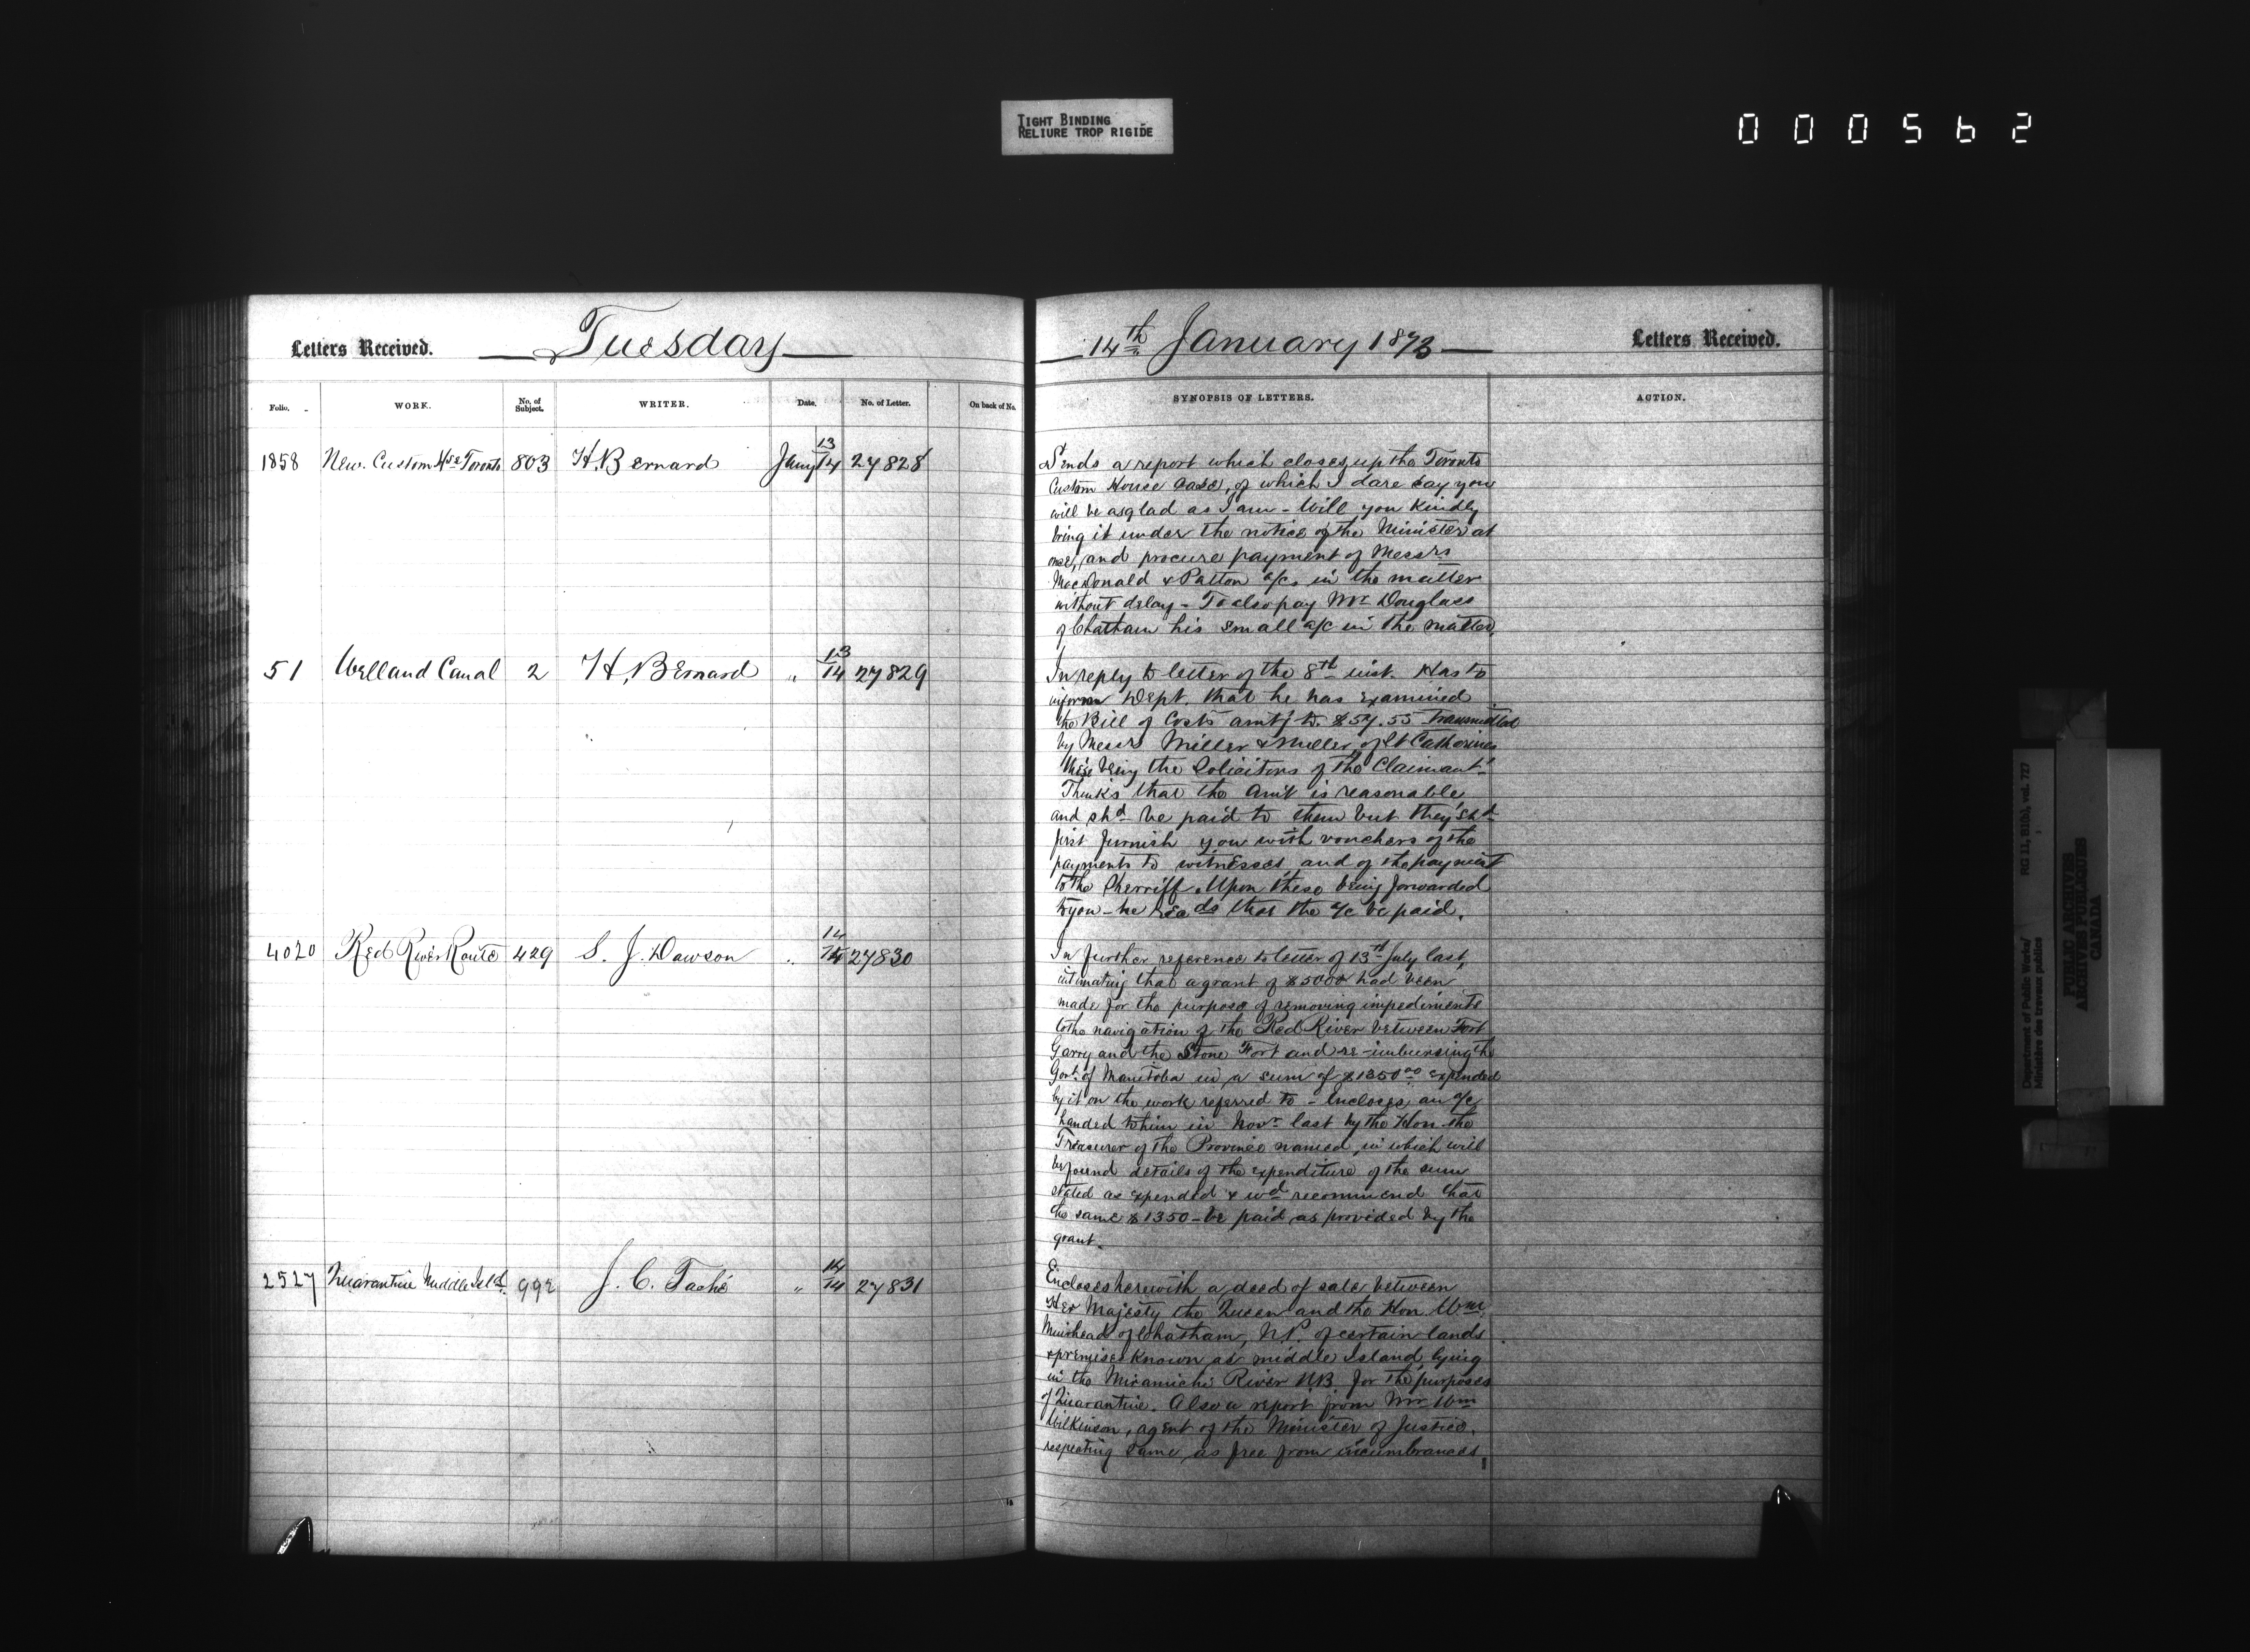 TIGHT BINDING
RELIURE TROP RIGIDE
000562
Letters Received.
Tuesday
14th January 1873
Letters Received.
Folio.
WORK.
No. of Subject.
WRITER.
Date.
No. of Letter.
On back of No.
SYNOPSIS OF LETTERS.
ACTION.
1858 New Custom Hse Toronto 803 H. Bernard Jany 13/14 27828
Sends a report which closes up the Toronto
Custom House Case, of which I dare say you
will be as glad as I am - Will you kindly
bring it under the notice of the Minister at
once, and procure payment of Messrs
MacDonald & Patton a/c. in the matter
without delay - To also pay Mr Douglass
of Chatham his small a/c in the matter.
51 Welland Canal 2 H. Bernard " 13/14 27829
In reply to letter of the 8th inst. Has to
inform Dept. that he has examined
the Bill of Costs amtg to $54.55 transmitted
by Messrs Miller & Miller of St Catherines
these being the Solicitors of the Claimant
Thinks that the Amt is reasonable
and shd be paid to them but they shd
first furnish you with vouchers of the
payments to witnesses and of the payment
to the Sherriff. Upon these being forwarded
to you - he recds that the a/c be paid.
4020 Red River Route 429 S. J. Dawson " 14/14 27830
In further reference to letter of 13th July last,
intimating that a grant of $5000 had been
made for the purpose of removing impediments
to the navigation of the Red River between Fort
Garry and the Stone Fort and re-imbursing the
Govt. of Manitoba in a sum of $1350.00 expended
by it on the work referred to - Encloses an a/c
handed to him in Novr last by the Hon. the
Treasurer of the Province named, in which will
be found details of the expenditure of the sum
stated as expended & wod recommend that
the same $1350 - be paid as provided by the
grant.
2527 Quarantine Middle Isld. 992 J. C. Taché " 14/14 27831
Encloses herewith a deed of sale between
Her Majesty the Queen and the Hon. Wm
Muirhead of Chatham, N.B. of certain lands
& premises known as middle Island, lying
in the Miramichi River NB for the purposes
of Quarantine. Also a report from Mr Wm
Wilkinson, agent of the Minister of Justice,
respecting same as free from incumbrances.
Department of Public Works/
Ministère des travaux publics
RG 11, B1(b), vol. 727
PUBLIC ARCHIVES
ARCHIVES PUBLIQUES
CANADA